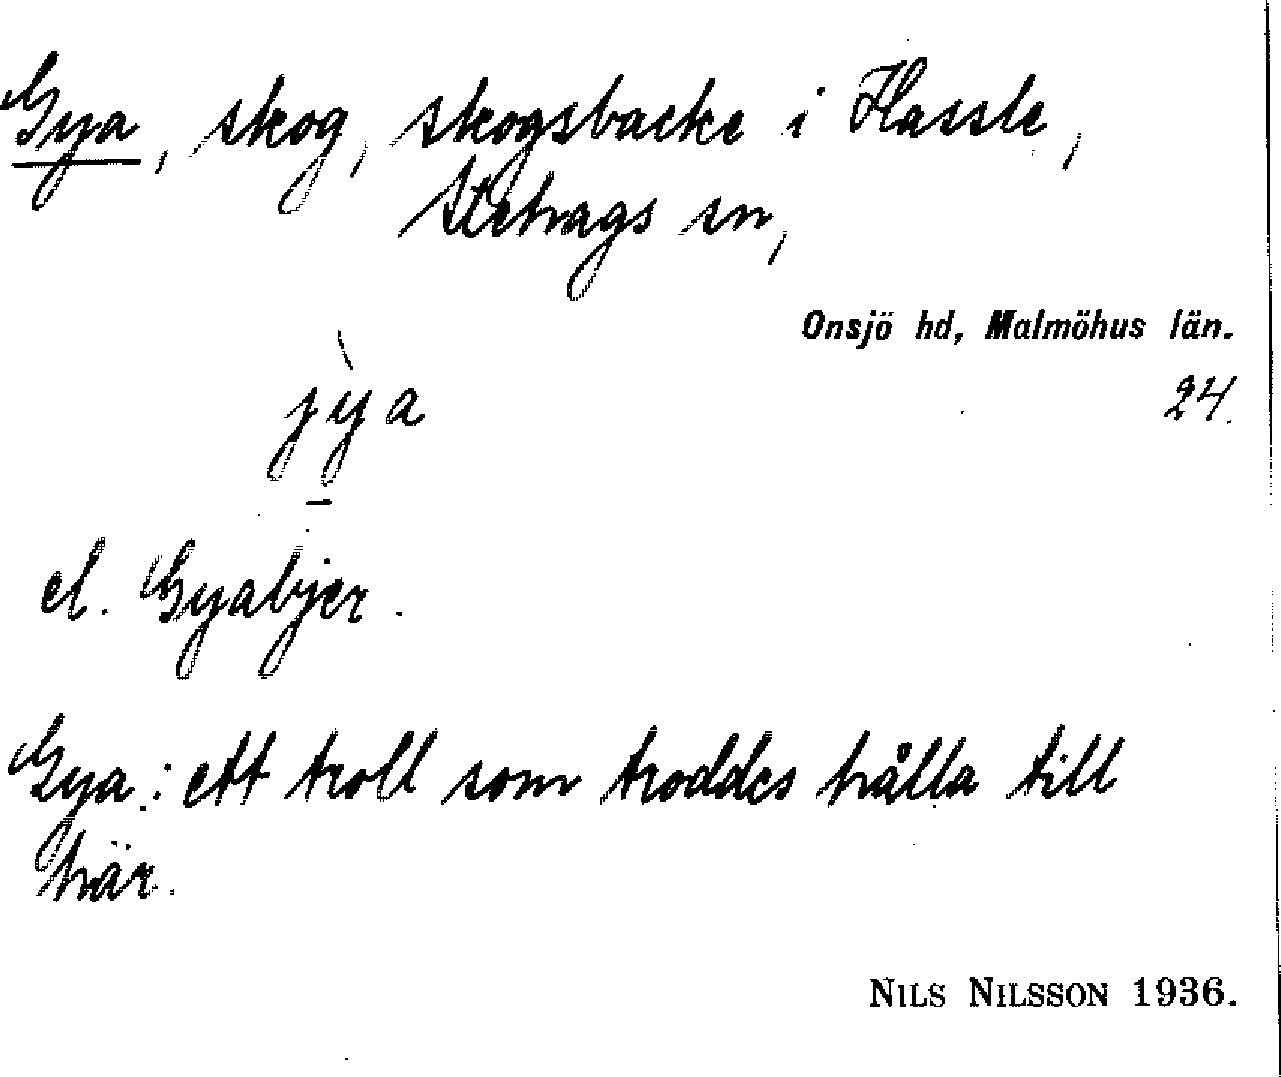 Gya, skog, skogsbacke i Hassle,
Stehags sn,
Onsjö hd, Malmöhus län.
24.
jỳa
el. Gyabjer.
Gya: ett troll som troddes hålla till
här.
NILS NILSSON 1936.